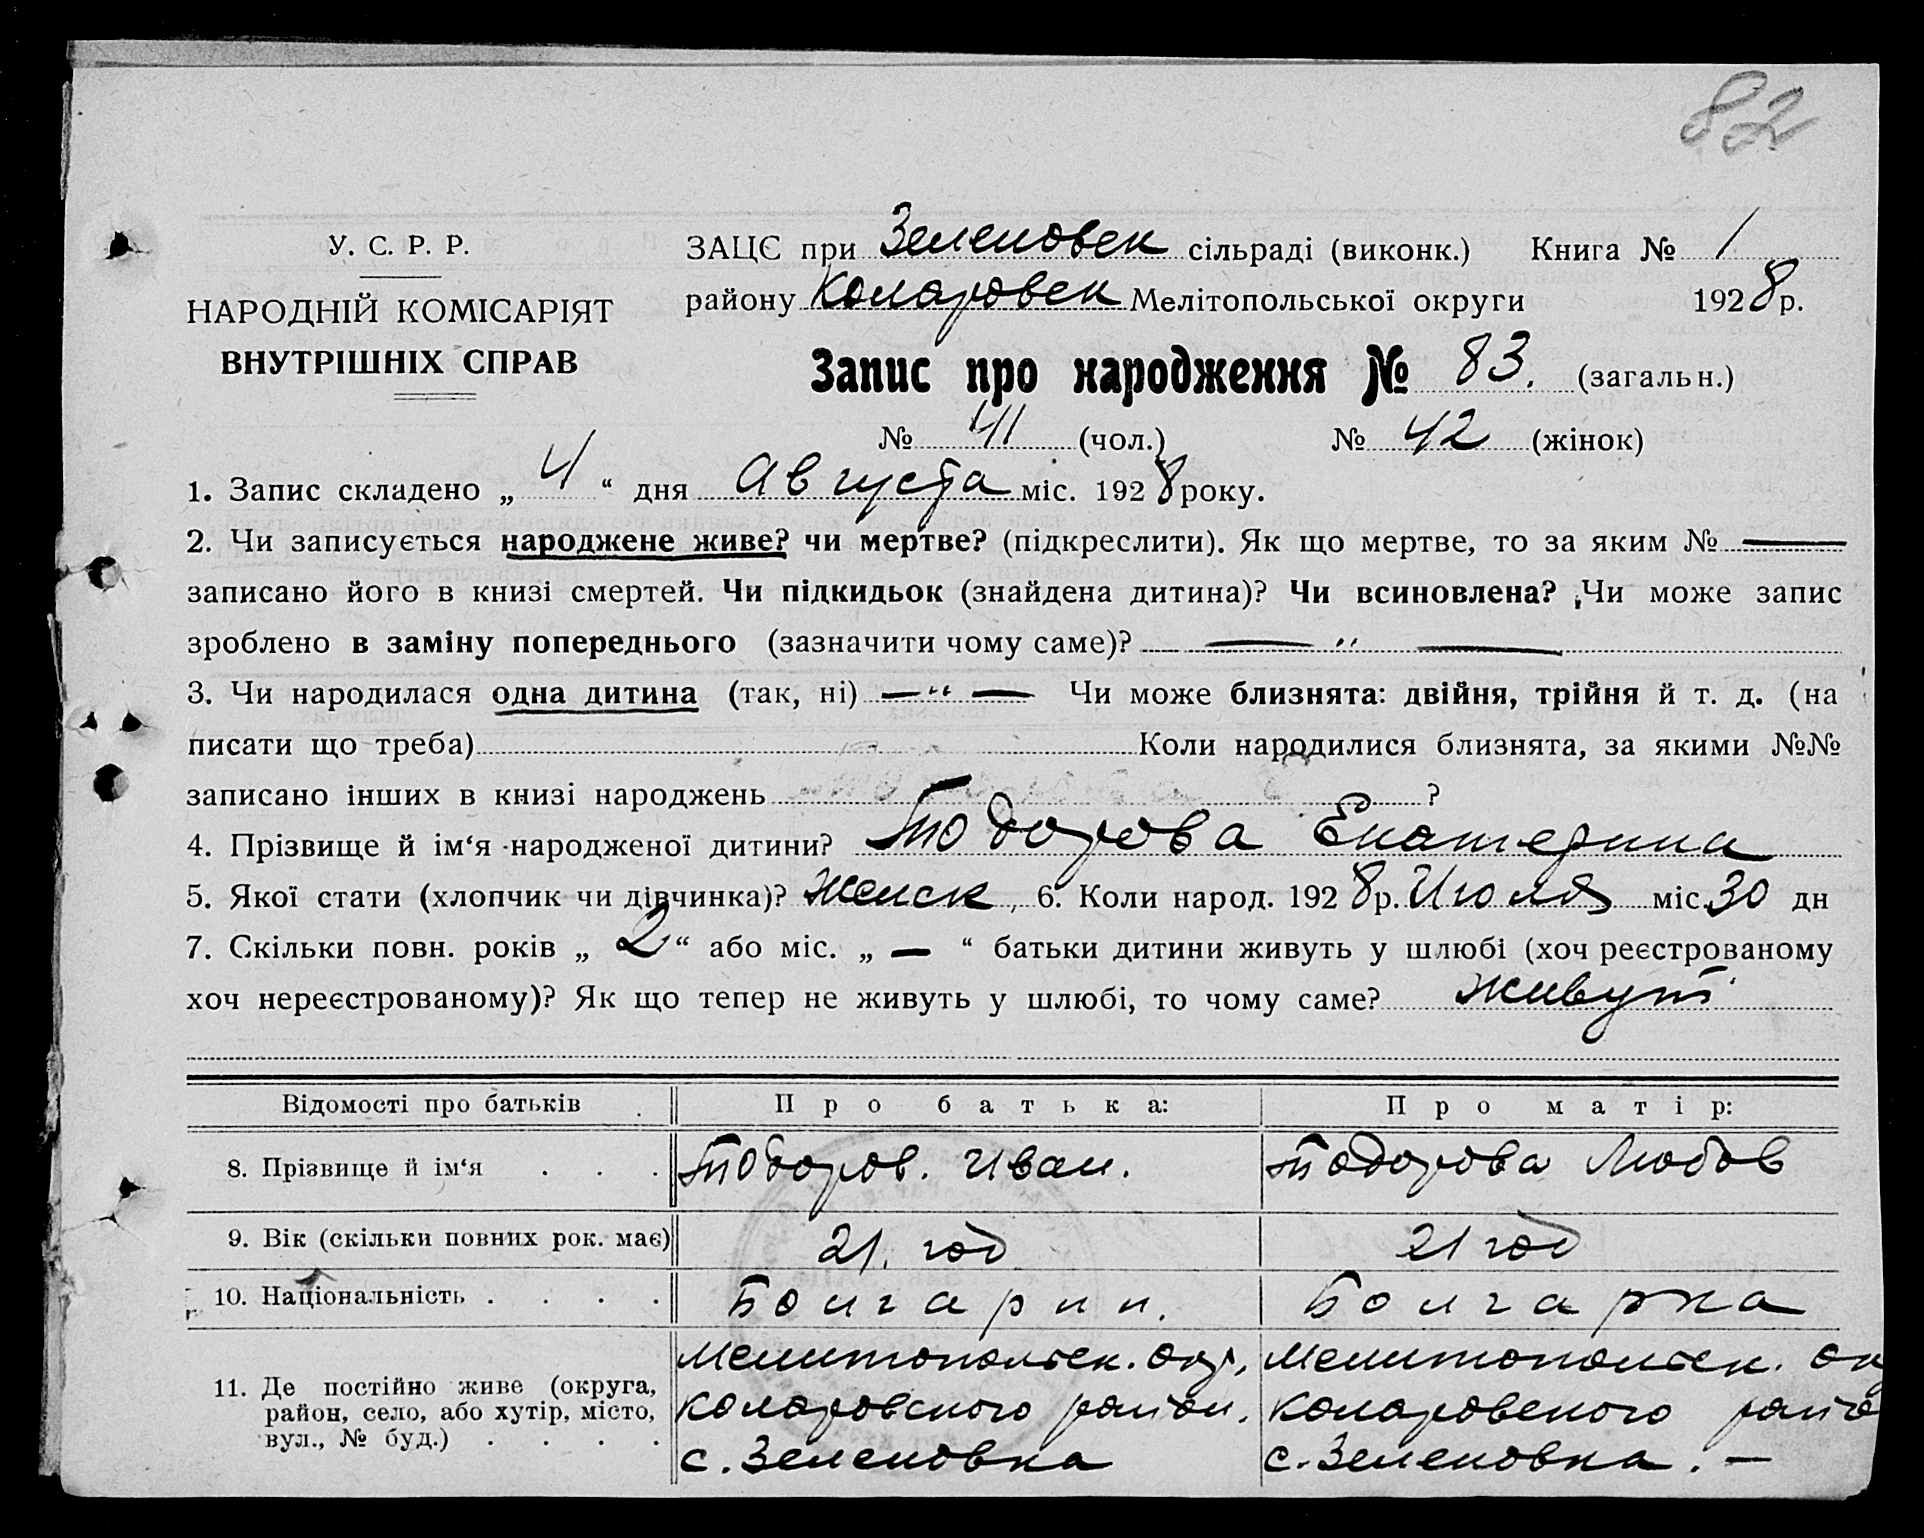 82
У. С. Р. Р.
НАРОДНІЙ КОМІСАРІЯТ
ВНУТРІШНІХ СПРАВ
ЗАЦС при Зеленовск сільраді (виконк.) Книга № 1
району Коларовск Мелітопольської округи 1928 р.
Запис про народження № 83. (загальн.)
№ 41 (чол.) № 42 (жінок)
1. Запис складено „ 4 “ дня Августа міс. 1928 року.
2. Чи записується народжене живе? чи мертве? (підкреслити). Як що мертве, то за яким № —
записано його в книзі смертей. Чи підкидьок (знайдена дитина)? Чи всиновлена? Чи може запис
зроблено в заміну попереднього (зазначити чому саме)? — „ —
3. Чи народилася одна дитина (так, ні) — „ — Чи може близнята: двійня, трійня й т. д. (на
писати що треба) Коли народилися близнята, за якими №№
записано інших в книзі народжень ?
4. Прізвище й ім‘я народженої дитини? Тодорова Екатерина
5. Якої стати (хлопчик чи дівчинка)? женск, 6. Коли народ. 1928 р. Июля міс. 30 дн
7. Скільки повн. років „ 2 “ або міс. „ — “ батьки дитини живуть у шлюбі (хоч реєстрованому
хоч нереєстрованому)? Як що тепер не живуть у шлюбі, то чому саме? живут
Відомості про батьків Про батька: Про матір:
8. Прізвище й ім‘я . . . Тодоров. Иван. Тодорова Любов
9. Вік (скільки повних рок. має) 21. год 21 год
10. Національність . . . . Болгарин. Болгарка
11. Де постійно живе (округа, район, село, або хутір, місто, вул., № буд.) . . . .
Мелитопольск. окр, Мелитопольск. ок
Коларовского район. Коларовского райо
с. Зеленовка с. Зеленовка. —